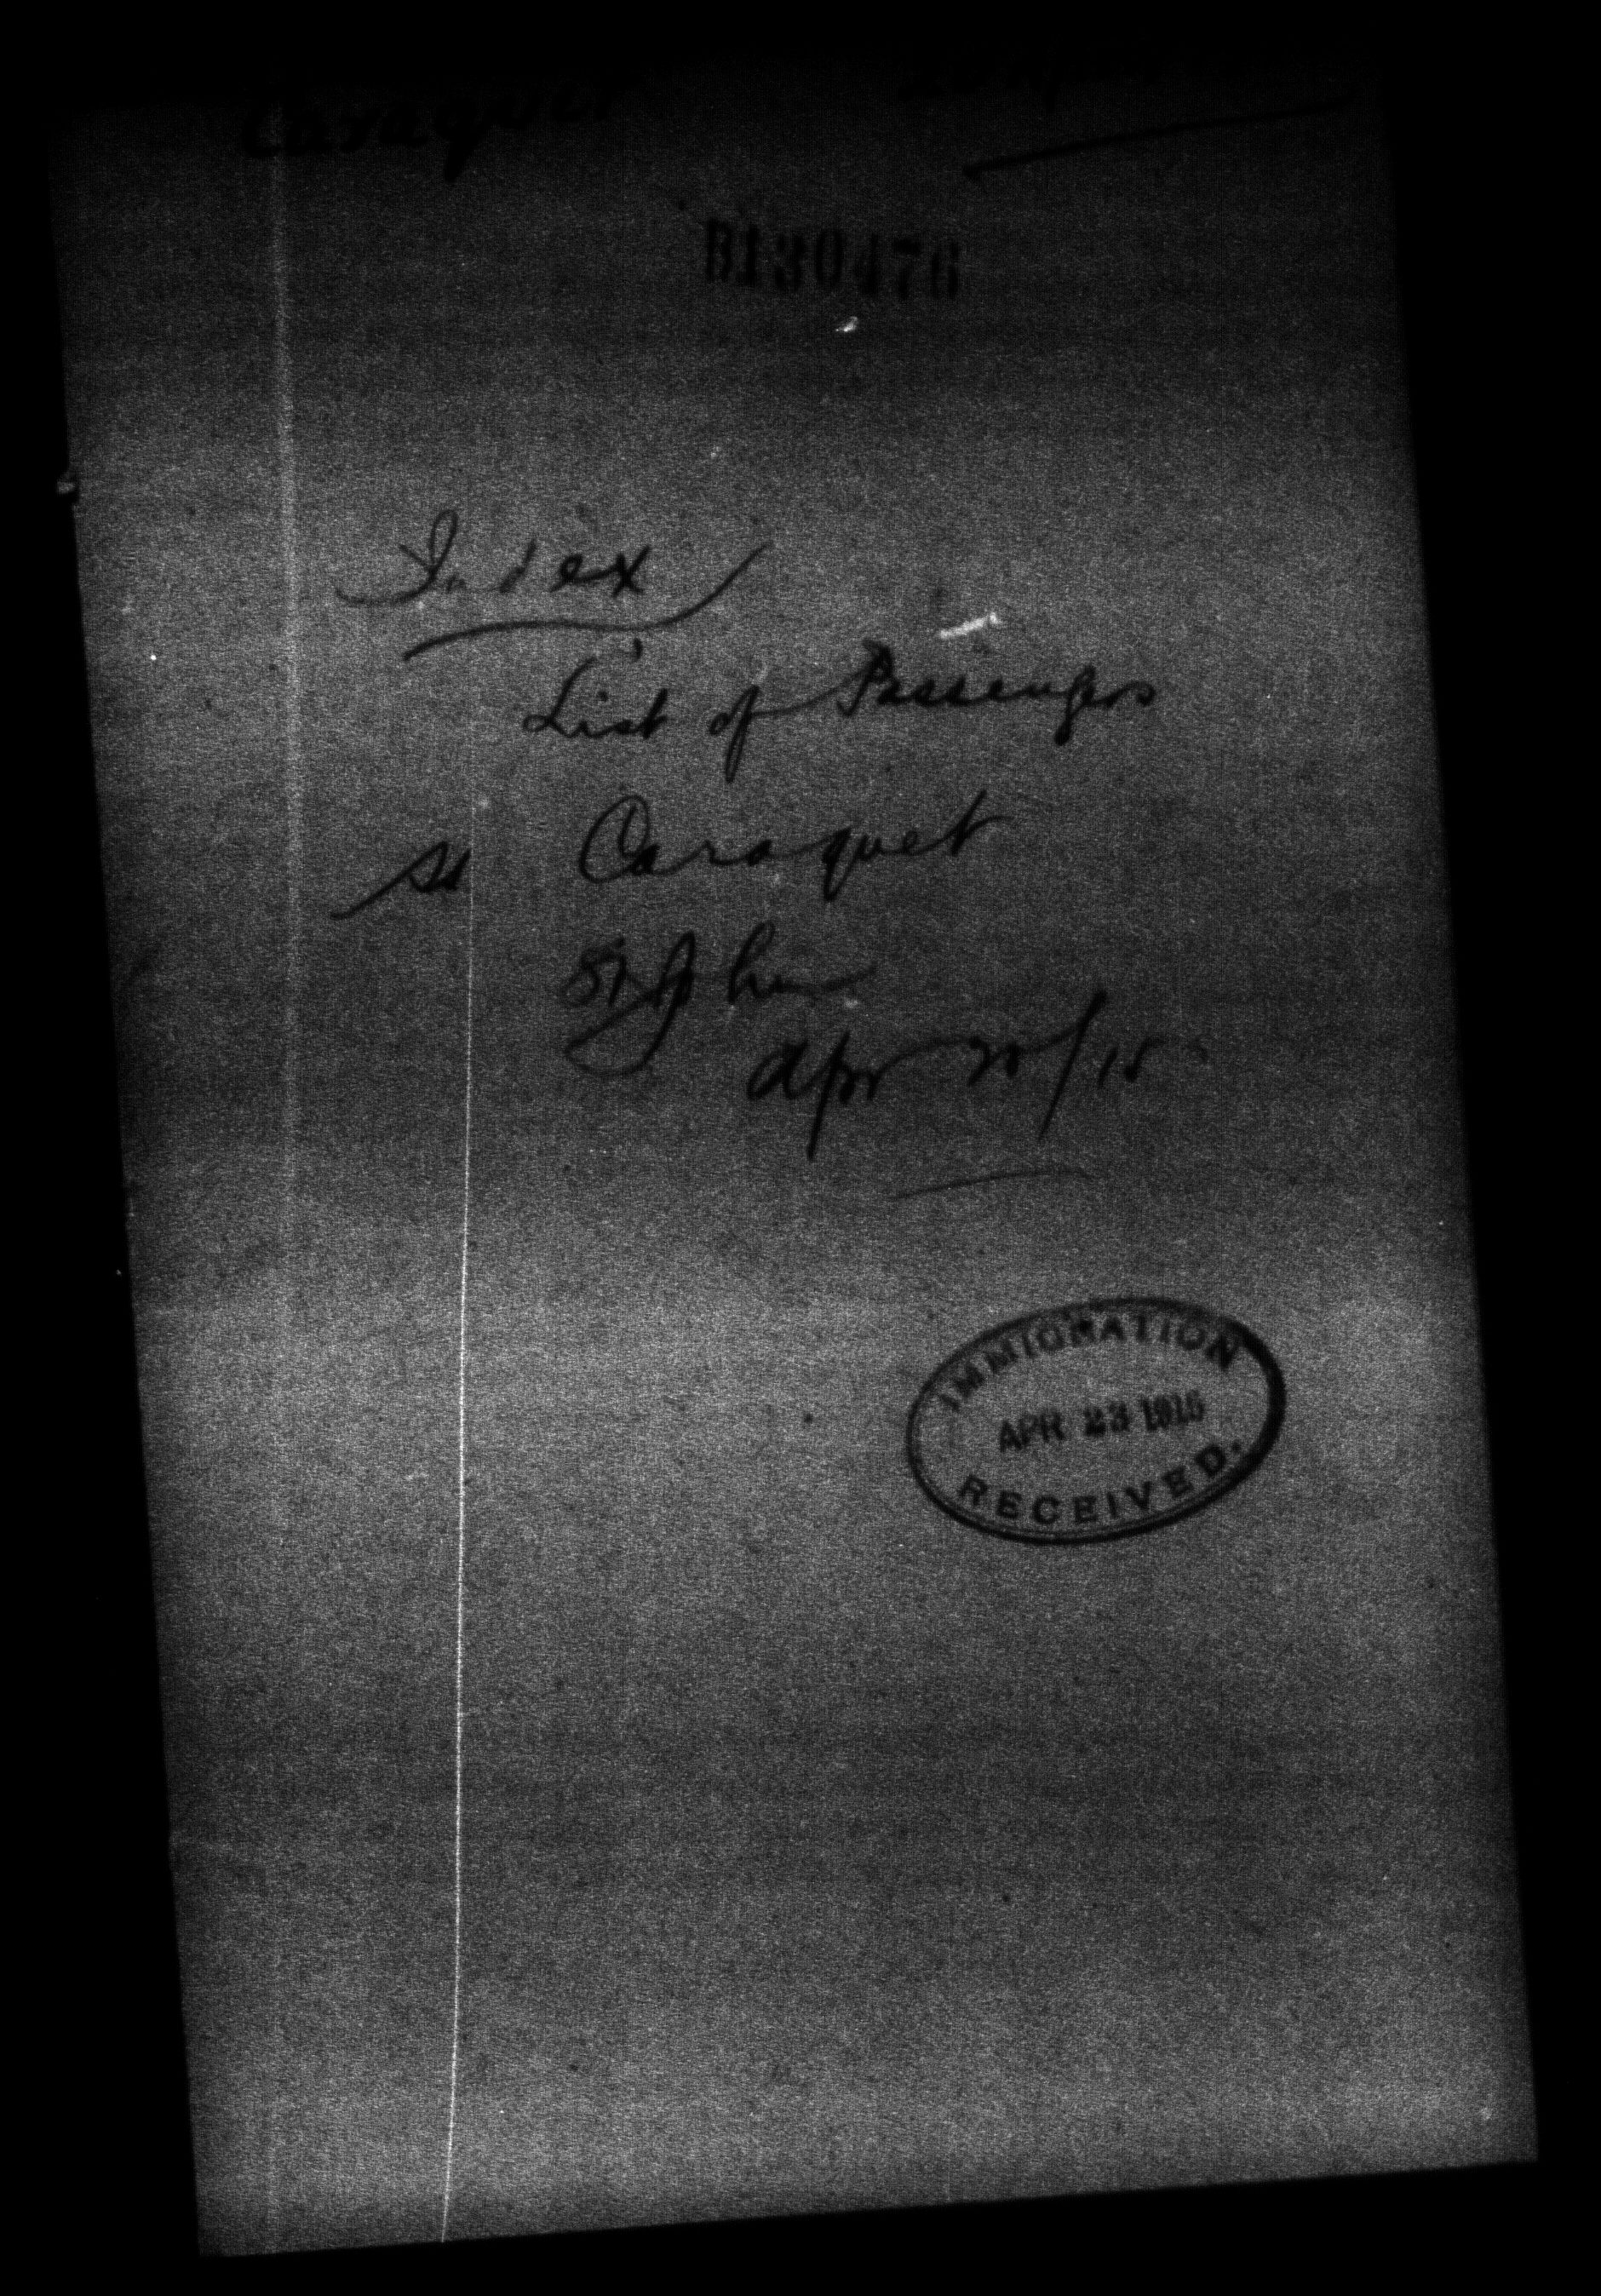 Caraquet
B130476
Index
List of Passengers
SS Caraquet
St John
Apr 20/15
IMMIGRATION
APR 23 1915
RECEIVED.